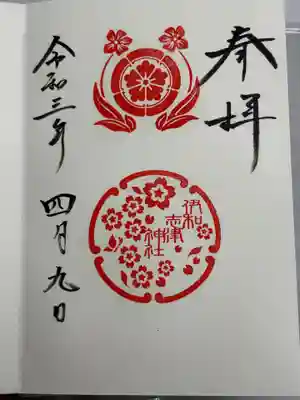 奉拝
伊和
志津
神社
令和三年 四月九日